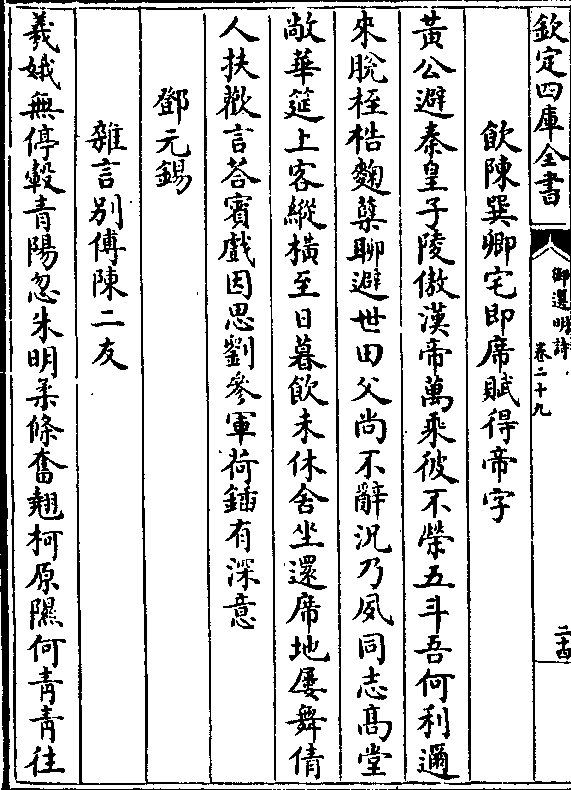 欽定四庫全書
御選明詩
卷二十九
二十四
飲陳巽卿宅即席賦得帝字
黃公避秦皇子陵傲漢帝萬乘彼不榮五斗吾何利邇
來脫桎梏麴蘖聊避世田父尚不辭況乃夙同志高堂
敞華筵上客縱橫至日暮飲未休舍坐還席地屢舞倩
人扶歡言荅賓戲因思劉參軍荷鍤有深意
鄧元錫
雜言別傅陳二友
羲娥無停轂青陽忽朱明柔條奮翹柯原隰何青青往